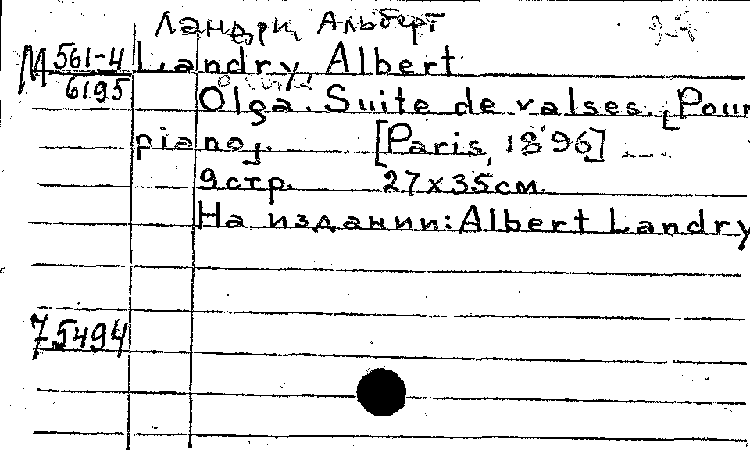 Ландри, Альберт
М 561-4 Landry, Albert
6195
Olga. Suite de valses. [Pour
piano].  [Paris, 1896]
9стр.  27х35см.
На издании: Albert Landry
75494